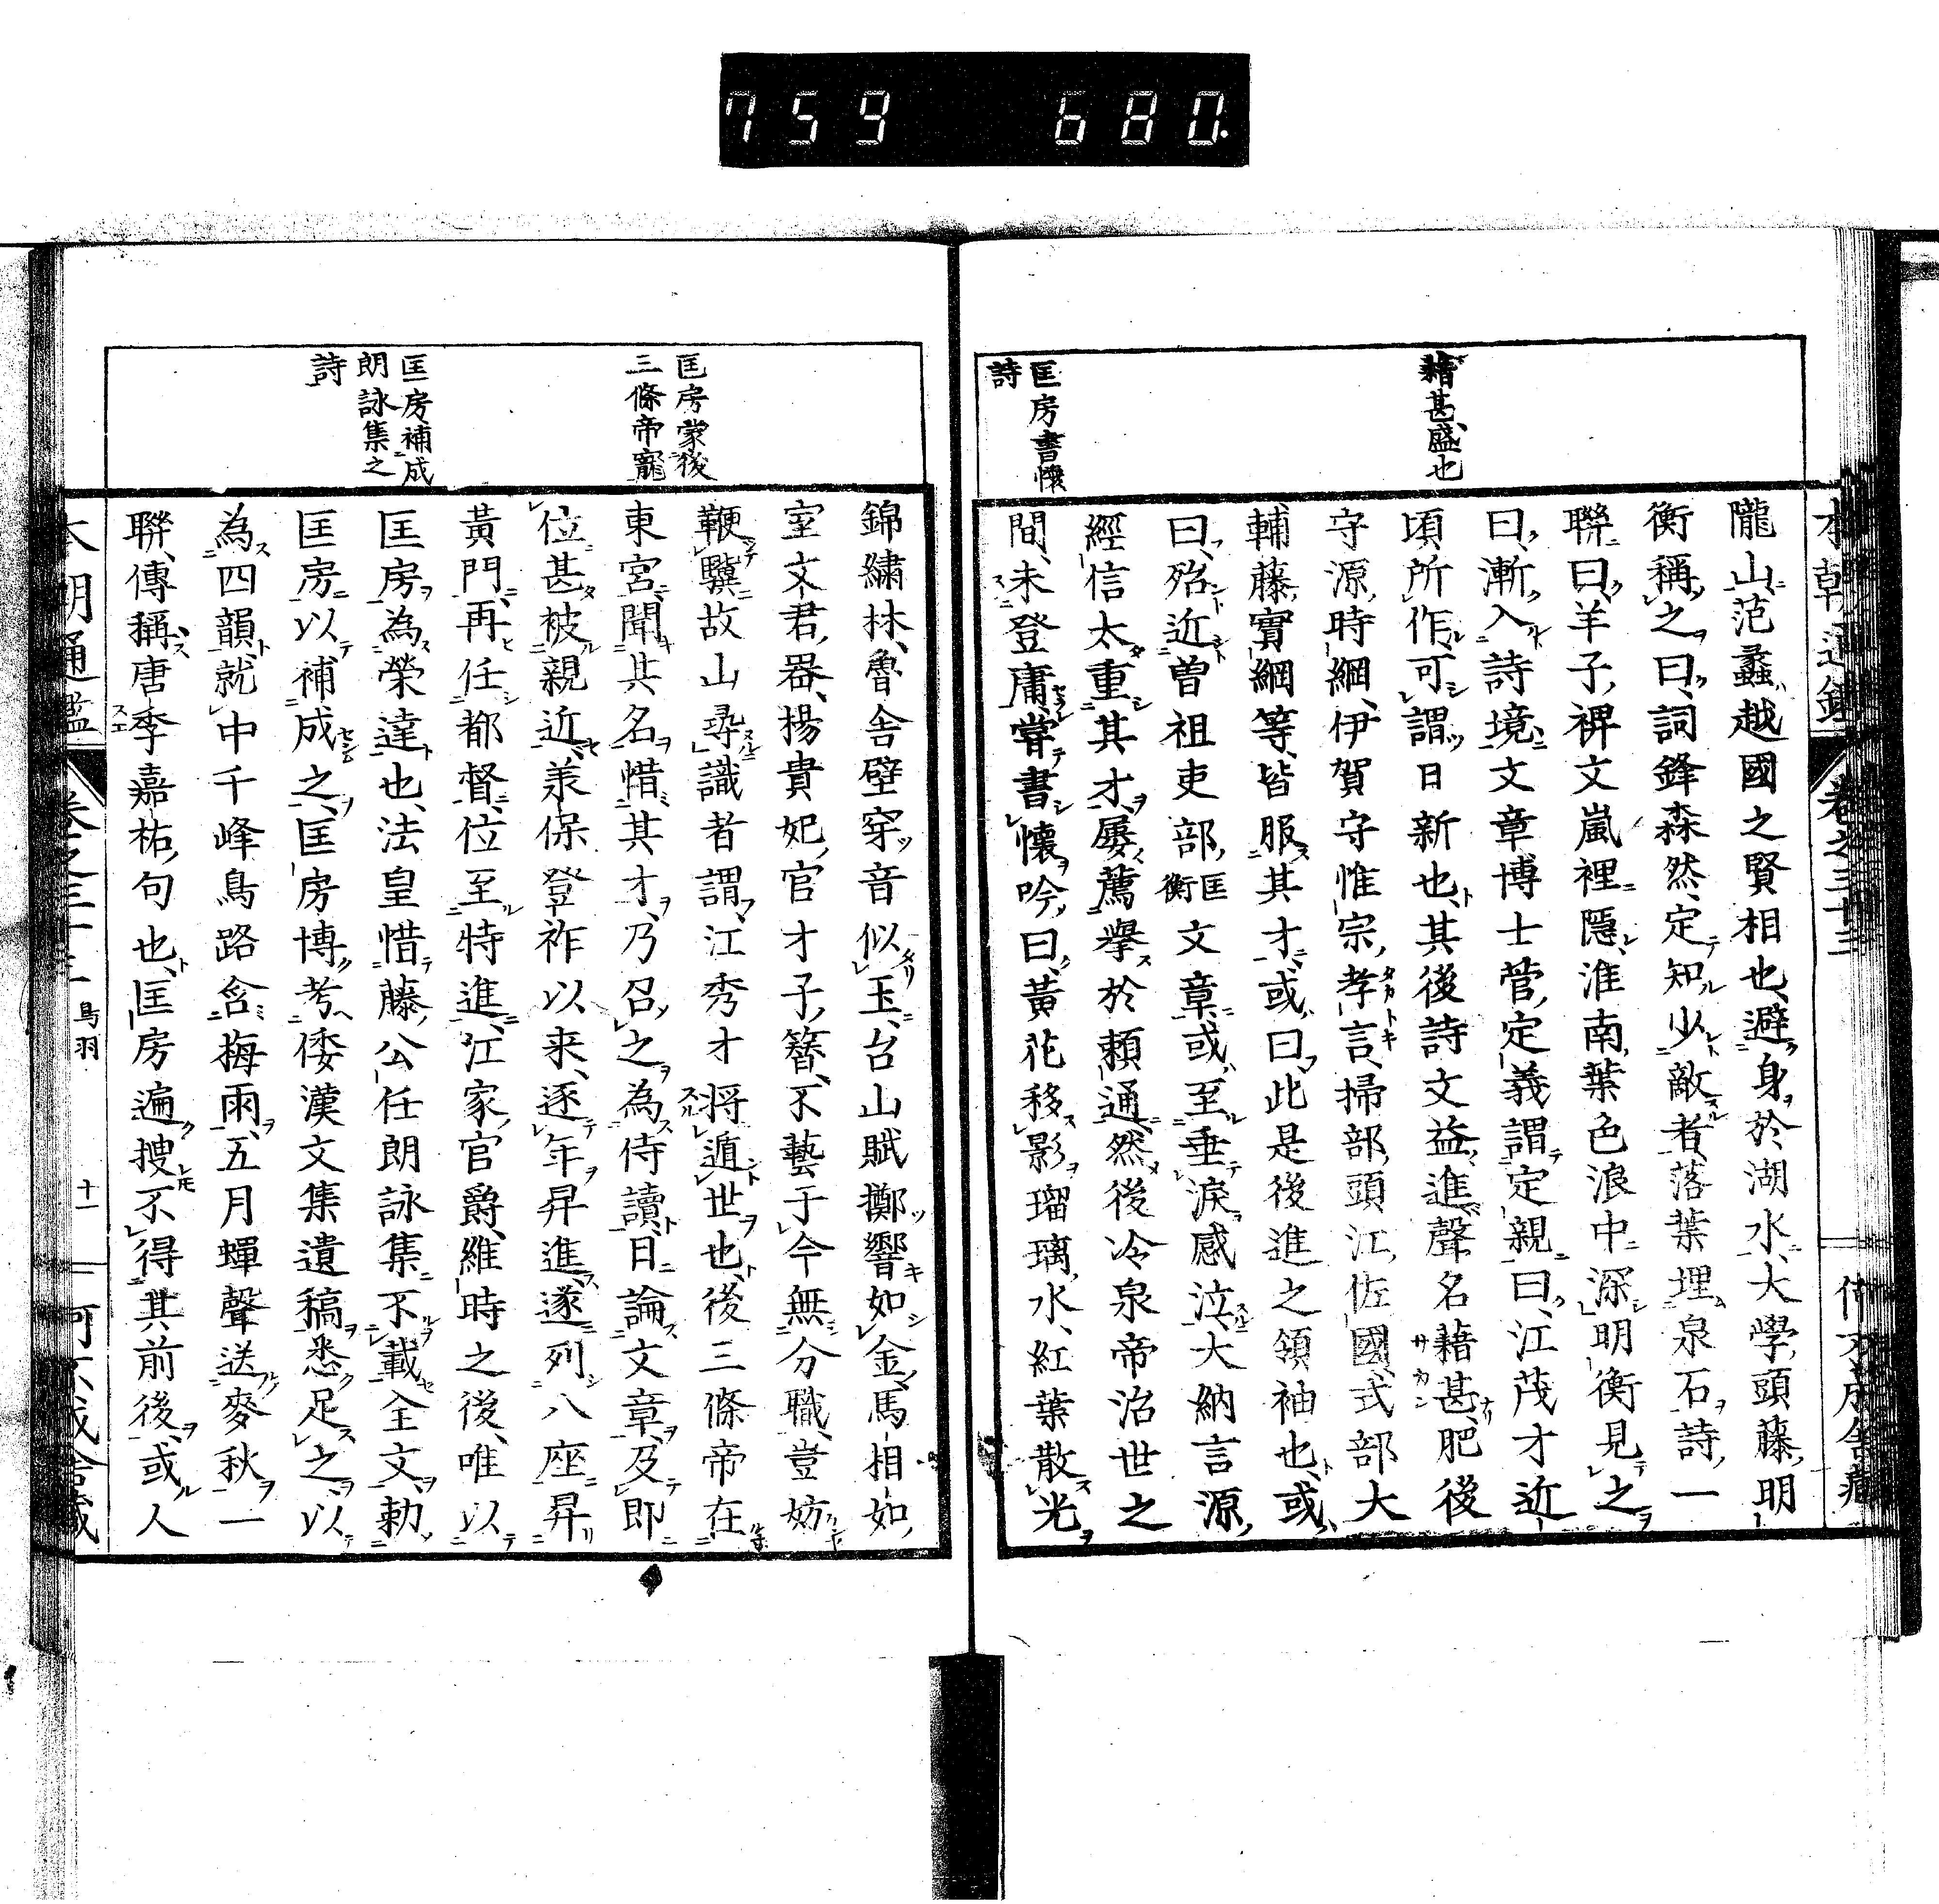 759 680.
本朝通鑑 卷之三十三
藉甚、盛也
匡房書懷
詩
隴山范蠡越國之賢相也、避身於湖水、大學頭藤明
衡稱之曰、詞鋒森然、定知少敵者、落葉埋泉石詩、一
聯曰、羊子裨文嵐裡隱、淮南葉色浪中深、明衡見之
曰、漸入詩境、文章博士菅定義謂定親曰、江茂才近
頃所作、可謂日新也、其後詩文益進、聲名藉甚、肥後
守源時綱、伊賀守惟宗孝言、掃部頭江佐國、式部大
輔藤實綱等、皆服其才、或曰、此是後進之領袖也、或
曰、殆近曾祖吏部匡衡文章、或至垂淚感泣、大納言源
經信太重其才、屡薦擧於賴通、然後冷泉帝治世之
間、未登庸、嘗書懷吟曰、黃花移影瑠璃水、紅葉散光
匡房蒙後
三條帝寵
匡房補成
朗詠集之
詩
錦繡林、魯舍壁穿音似玉、台山賦擲響如金、馬相如
室文君器、楊貴妃官才子簪、不藝于今無分職、豈妨
鞭驥故山尋、識者謂、江秀才将遁世也、後三條帝在
東宮、聞其名、惜其才、乃召之、為侍讀、日論文章、及即
位甚被親近、羕保登祚以来、逐年昇進、遂列八座、昇
黃門、再任都督、位至特進、江家官爵、維時之後、唯以
匡房為榮達也、法皇惜藤公任朗詠集不載全文、勅
匡房以補成之、匡房博考倭漢文集遺稿悉足之、以
為四韻、就中千峰鳥路含梅雨、五月蟬聲送麥秋一
聯、傳稱唐李嘉祐句也、匡房遍搜不得其前後、或人
本朝通鑑 卷之三十三 鳥羽 十一